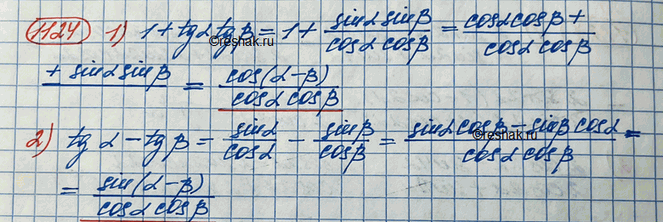 1124 1) 1 + tgα tgβ = 1 + (sinα sinβ)/(cosα cosβ) = (cosα cosβ +)/(cosα cosβ)
(+ sinα sinβ) = cos(α-β)/(cosα cosβ)
2) tgα - tgβ = sinα/cosα - sinβ/cosβ = (sinα cosβ - sinβ cosα)/(cosα cosβ) =
= sin(α-β)/(cosα cosβ)
©reshak.ru
©reshak.ru